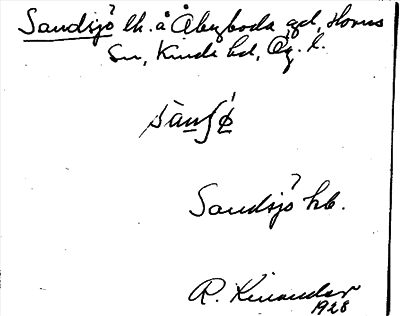 Sandsjö lh. å Åbyboda gd, Horns
Sn, Kinda hd, Ög. l.
Sandsjö hb.
R. Kinander
1928